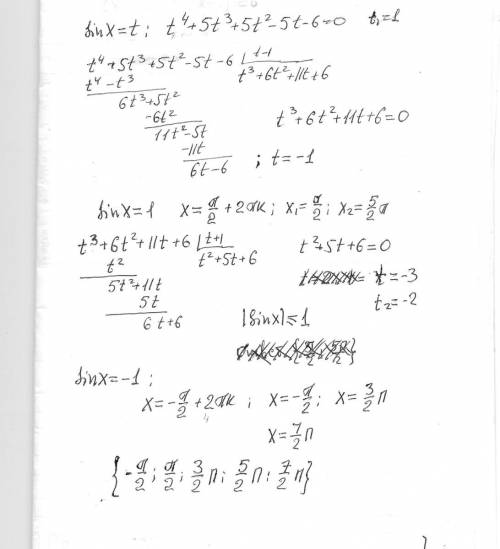 sinx=t; t⁴+5t³+5t²-5t-6=0 t₁=1
t⁴+5t³+5t²-5t-6 | t-1
t⁴-t³ t³+6t²+11t+6
6t³+5t²
-6t² t³+6t²+11t+6=0
11t²-5t
-11t
6t-6 ; t=-1
sinx=1 x=π/2+2πk; x₁=π/2; x₂=5/2π
t³+6t²+11t+6 | t+1 t²+5t+6=0
t² t²+5t+6
5t²+11t t=-3
5t t₂=-2
6t+6 |sinx|≤1
sinx=-1;
x=-π/2+2πk; x=-π/2; x=3/2π
x=7/2π
{-π/2; π/2; 3/2π; 5/2π; 7/2π}